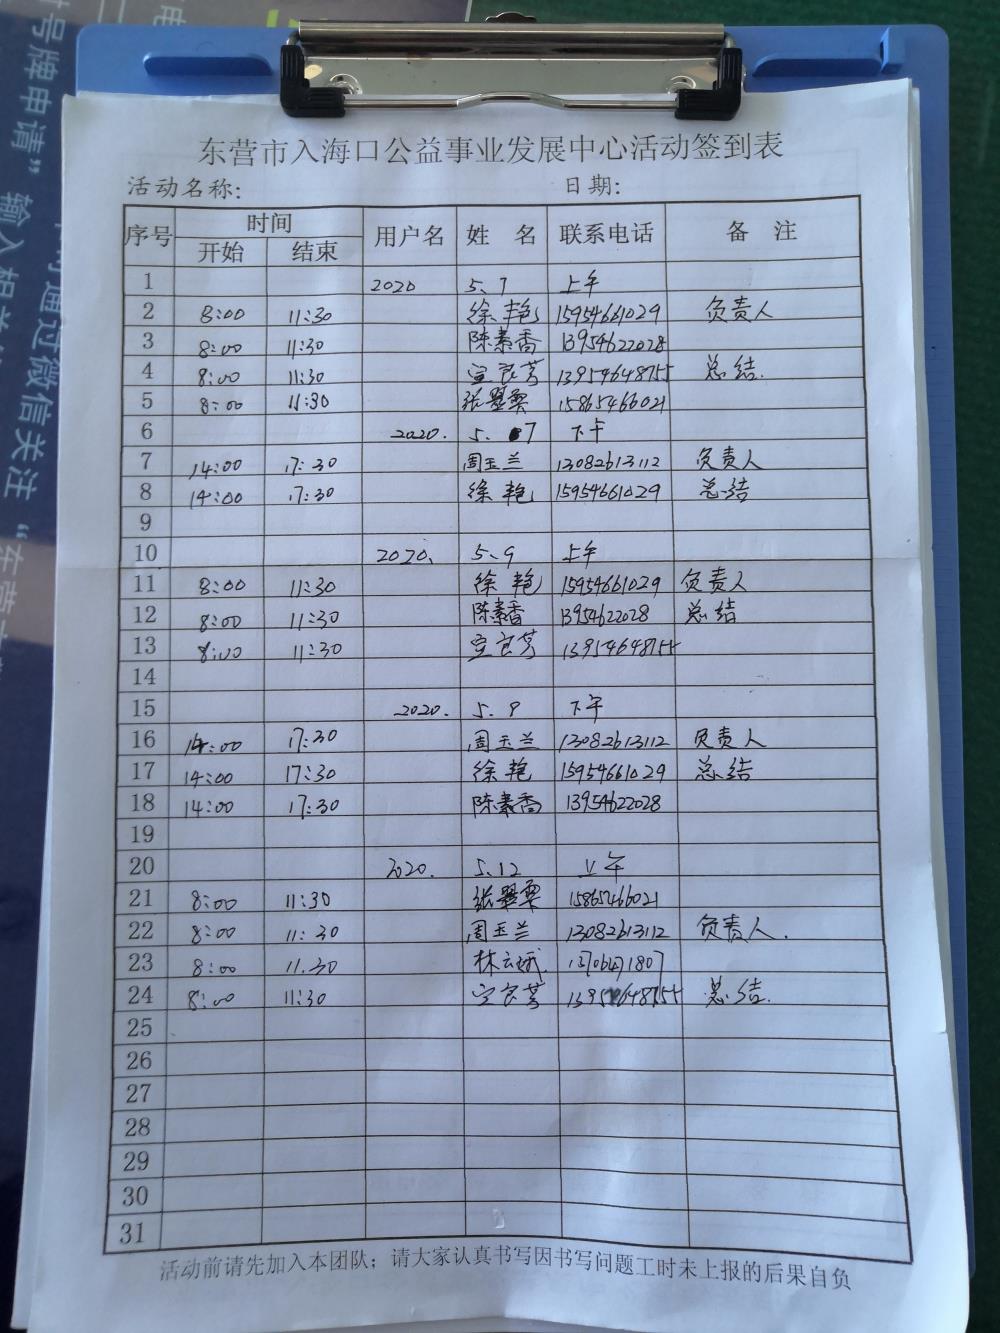 号牌申请”输入相关
通过微信关注“东营
东营市入海口公益事业发展中心活动签到表
活动名称: 日期:
序号 时间 用户名 姓 名 联系电话 备 注
开始 结束
1 2020 5、7 上午
2 8:00 11:30 徐艳 15954661029 负责人
3 8:00 11:30 陈素香 13954622028
4 8:00 11:30 13954648755 总结.
5 8:00 11:30 张翠粟 15865466021
6 2020. 5、7 下午
7 14:00 17:30 周玉兰 13082613112 负责人
8 14:00 17:30 徐艳 15954661029 总结
9
10 2020、 5、9 上午
11 8:00 11:30 徐艳 15954661029 负责人
12 8:00 11:30 陈素香 13954622028 总结
13 8:00 11:30 13954648755
14
15 2020. 5、9 下午
16 14:00 17:30 周玉兰 13082613112 负责人
17 14:00 17:30 徐艳 15954661029 总结
18 14:00 17:30 陈素香 13954622028
19
20 2020. 5、12 上午
21 8:00 11:30 张翠粟 15865466021
22 8:00 11:30 周玉兰 13082613112 负责人.
23 8:00 11.30 林云娥
24 8:00 11:30 总结.
25
26
27
28
29
30
31
活动前请先加入本团队；请大家认真书写因书写问题工时未上报的后果自负